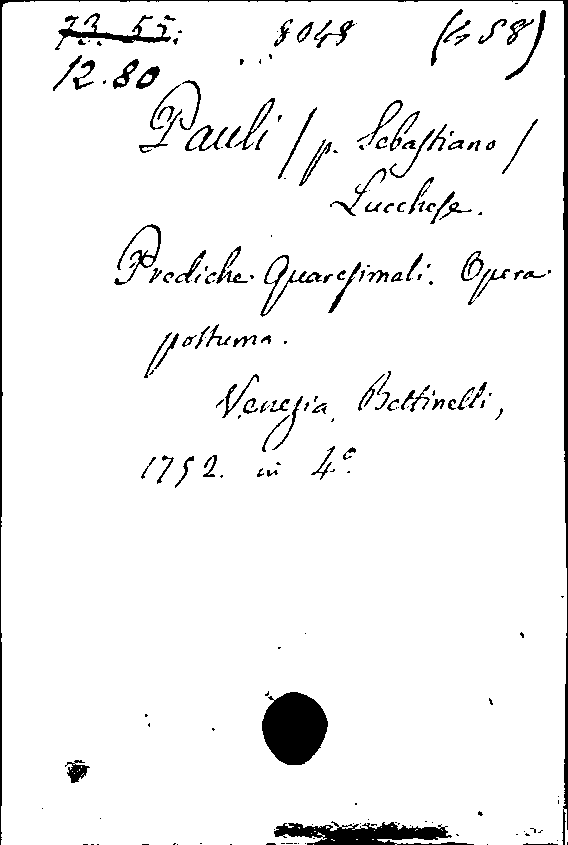 73. 55. 8048 (458)
12.80
Pauli / p. Sebastiano /
Lucchese.
Prediche Quaresimali. Opera
postuma.
Venezia, Bettinelli,
1752. in 4º.